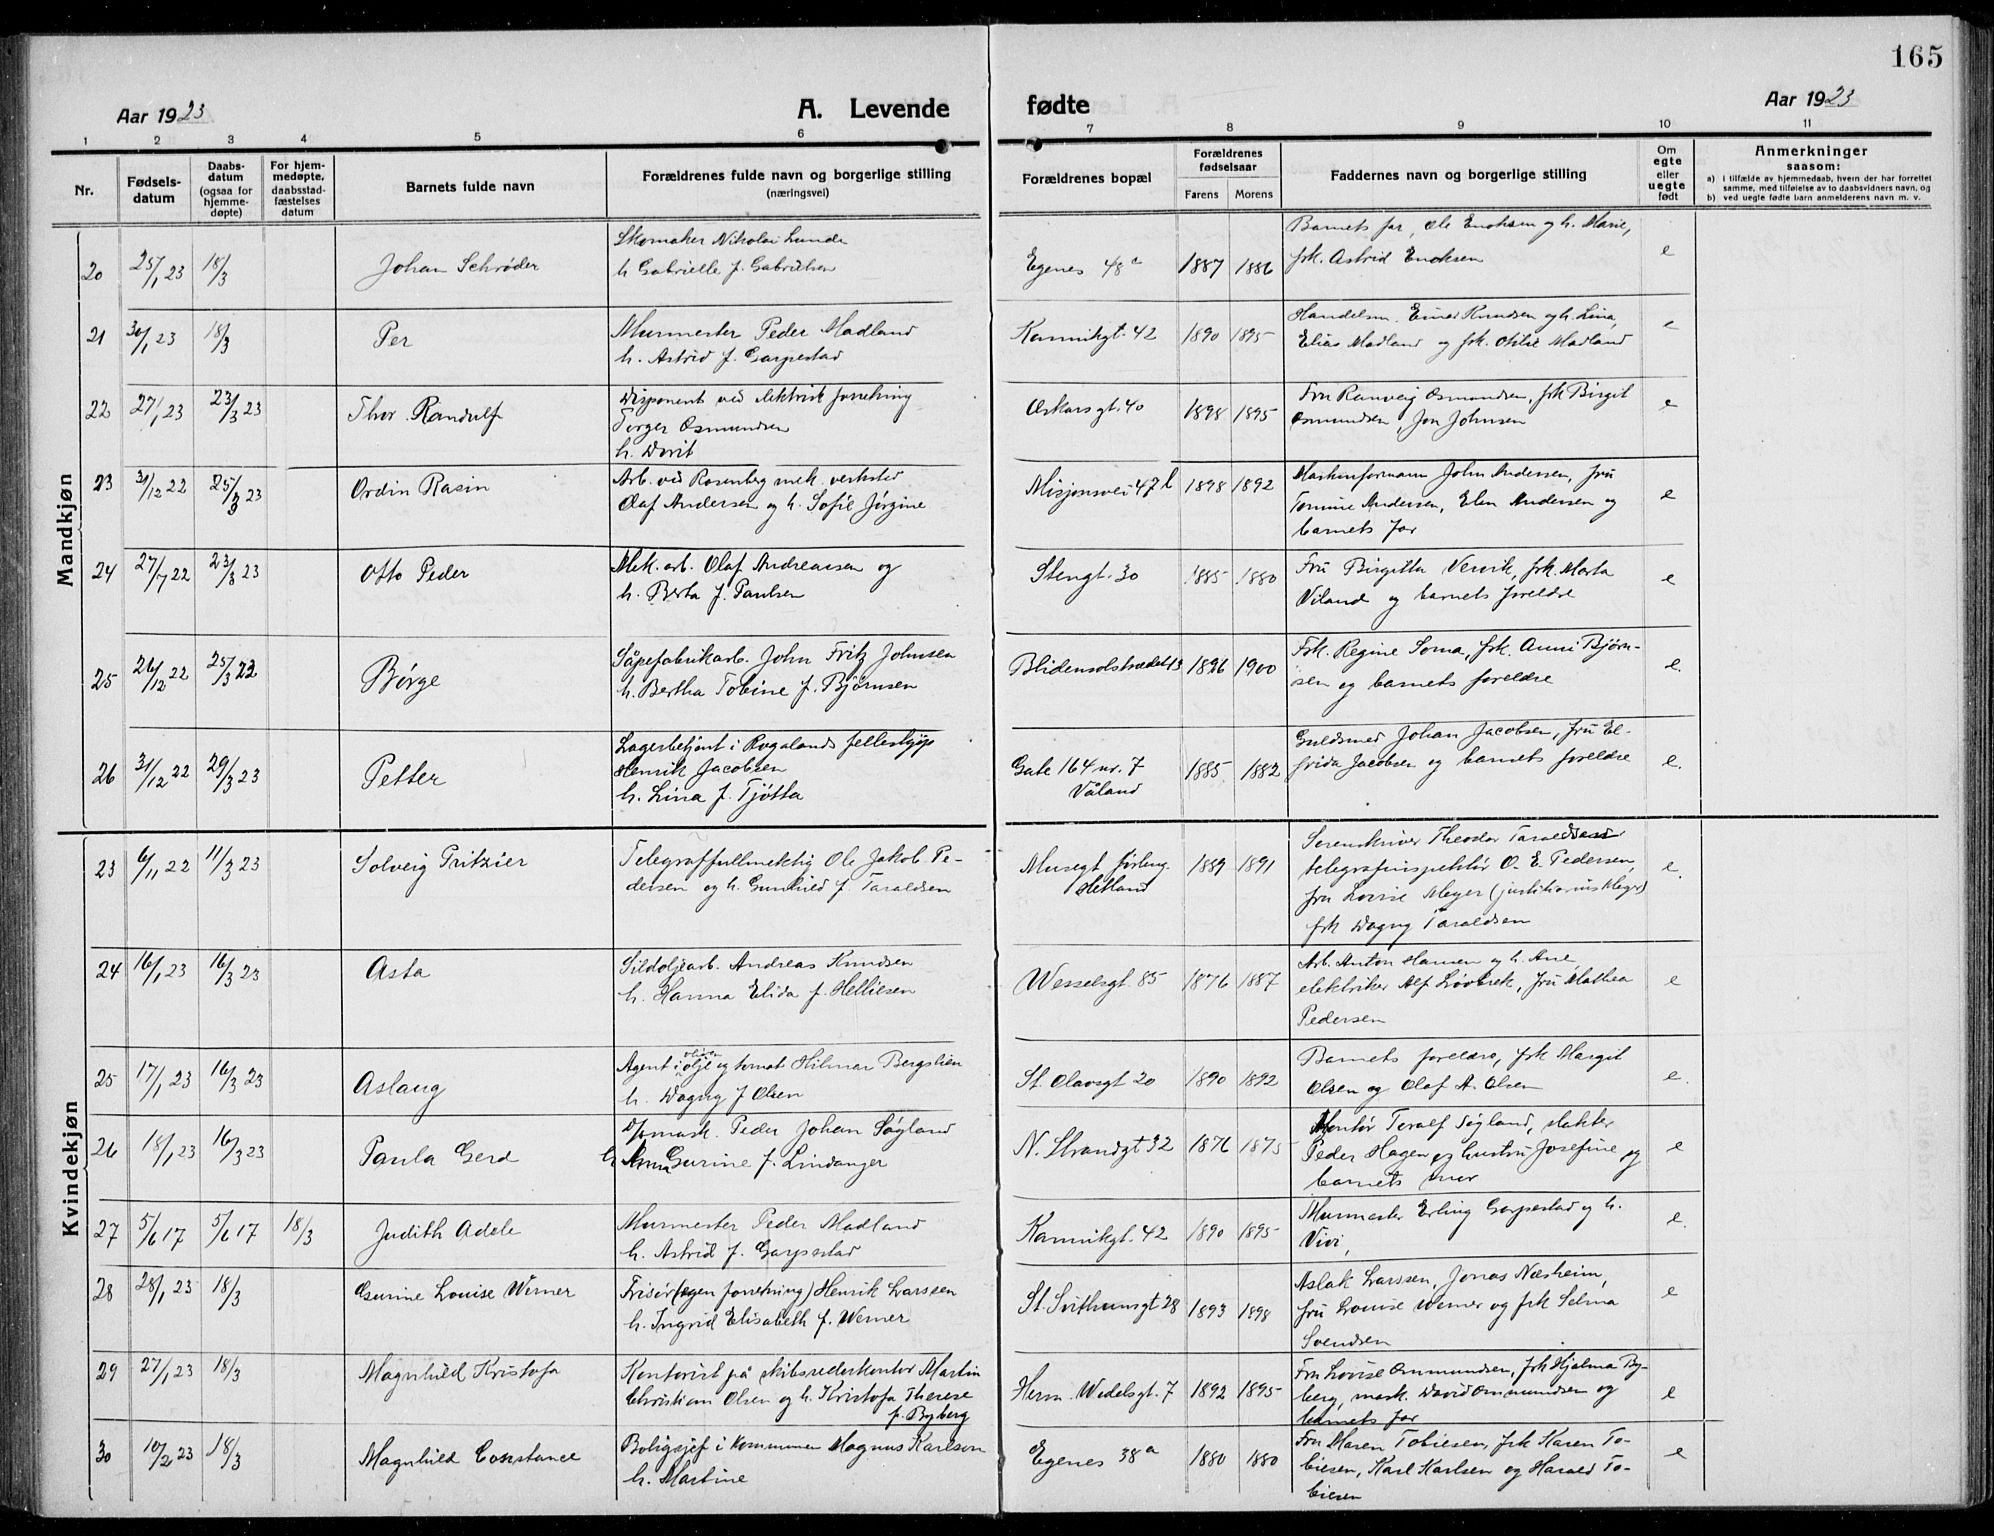 165
Aar 1923 A. Levende fødte Aar 1923
1 2 3 4 5 6 7 8 9 10 11
Nr. Fødsels-datum Daabs-datum (ogsaa for hjemme-døpte) For hjem-medøpte, daabsstad-fæstelses datum Barnets fulde navn Forældrenes fulde navn og borgerlige stilling (næringsvei) Forældrenes bopæl Forældrenes fødselsaar Farens Morens Faddernes navn og borgerlige stilling Om egte eller uegte født Anmerkninger saasom:
a) i tilfælde av hjemmedaab, hvem der har forrettet samme, med tilføielse av to daabsvidners navn, og
b) ved uegte fødte barn anmelderens navn m. v.
Mandkjøn
20 25/1 23 18/3 Johan Schrøder Skomaker Nikolai Lunde
h. Gabrielle f. Gabrielsen Egenes 48 a 1887 1886 Barnets far, Ole Enoksen og h. Marie,
frk. Astrid Enoksen e
21 30/1 23 18/3 Per Murmester Peder Madland
h. Astrid f. Garpestad Kannikgt. 42 1890 1895 Handelsm. Einar Knudsen og h. Lina,
Elias Madland og frk. Otilie Madland e
22 27/1 23 23/3 23 Thor Randulf Disponent ved elektrisk forretning
Torger Osmundsen
h. Dorit Oskarsgt. 40 1898 1895 Fru Ranveig Osmundsen, frk Birgit
Osmundsen, Jon Johnsen e
23 31/12 22 25/3 23 Ordin Rasin Arb. ved Rosenberg mek. verksted
Olaf Andersen og h. Sofie Jørgine Misjonsvei 47 b 1898 1892 Maskinformann John Andersen, fru
Tomine Andersen, Elen Andersen og
barnets far e
24 27/7 22 23/3 23 Otto Peder Mek. arb. Olaf Andreassen og
h. Berta f. Paulsen Stengt. 30 1885 1880 Fru Birgitta Vervik, frk. Marta
Viland og barnets foreldre e
25 26/12 22 25/3 23 Børge Såpefabrikarb. John Fritz Johnsen
h. Bertha Tobine f. Bjørnsen Blidensolstrædet 13 1896 1900 Frk. Regine Soma, frk. Anni Bjørn-
sen og barnets foreldre e.
26 31/12 22 29/3 23 Petter Lagerbetjent i Rogalands felleskjøp
Henrik Jacobsen
h. Lina f. Tjøtta Gate 164 nr. 7
Våland 1885 1882 Guldsmed Johan Jacobsen, fru El-
frida Jacobsen og barnets foreldre e.
Kvindekjøn
23 6/11 22 11/3 23 Solveig Pritzier Telegraffullmektig Ole Jakob Pe-
dersen og h. Gunhild f. Taraldsen Musegt. forleng.
Hetland 1889 1891 Sorenskriver Theodor Taraldsen
telegrafinspektør O. E. Pedersen,
fru Lovise Meyer (justitiarius Meyer)
frk Dagny Taraldsen e.
24 16/1 23 16/3 23 Asta Sildoljearb. Andreas Knudsen
h. Hanna Elida f. Helliesen Wesselsgt. 85 1876 1887 Arb. Anton Hansen og h. Ane
elektriker Alf Løvbrek, fru Mathea
Pedersen e
25 17/1 23 16/3 23 Aslaug Agent i oliven olje og tomat Hilmar Bergslien
h. Dagny f Olsen St. Olavsgt 20 1890 1892 Barnets foreldre, frk Margit
Olsen og Olaf A. Olsen e.
26 18/1 23 16/3 23 Paula Gerd D/s mask. Peder Johan Søyland
h Anna Gurine f. Lindanger N. Strandgt 32 1876 1875 Montør Toralf Søyland, slakter
Peder Hagen og hustru Josefine og
barnets mor e
27 5/6 17 5/6 17 18/3 Judith Adele Murmester Peder Madland
h. Astrid f. Garpestad Kannikgt. 42 1890 1895 Murmester Erling Garpestad og h.
Vivi, e.
28 28/1 23 18/3 Gurine Louise Werner Frisør (egen forretning) Henrik Larssen
h. Ingrid Elisabeth f. Werner St. Svithunsgt 28 1893 1898 Aslak Larssen, Jonas Næsheim,
fru Louise Werner og frk Selma
Svendsen e
29 27/1 23 18/3 Magnhild Kristofa Kontorist på skibsrederkontor Martin
Christian Olsen og h. Kristofa Therese
f. Byberg Herm. Wedelsgt. 7 1892 1895 Fru Lovise Ommundsen, frk Hjelma By-
berg, mask. David Ommundsen og
barnets far e
30 10/2 23 18/3 Magnhild Constance Boligsjef i kommunen Magnus Karlson
h. Martine Egenes 38 a 1880 1880 Fru Maren Tobiesen, frk Karen To-
biesen, Karl Karlsen og Harald To-
biesen e